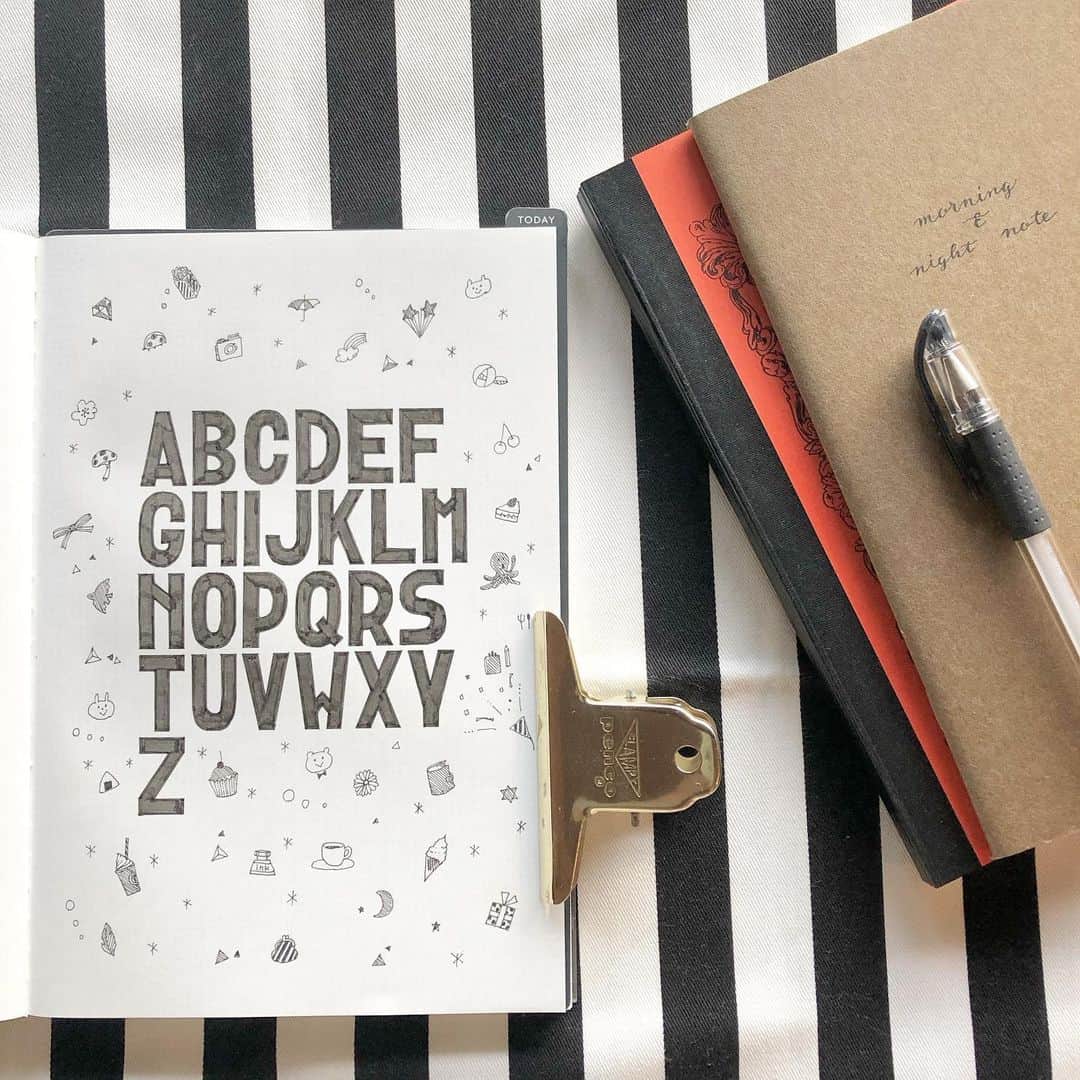 TODAY
morning
&
night note
ABCDEF
GHIJKLM
NOPQRS
TUVWXY
Z
CLAMPY
penco
ink